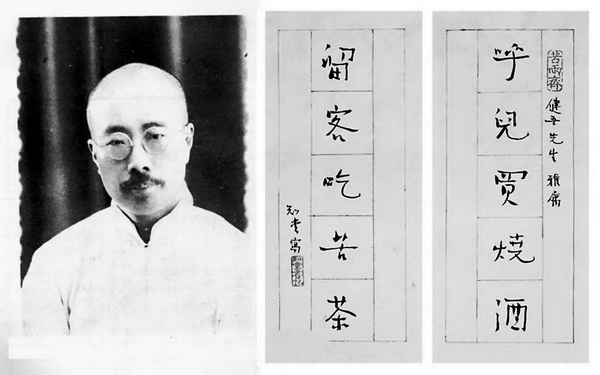 苦雨齋
健吾先生 雅屬
呼兒買燒酒
留客吃苦茶
知堂寫